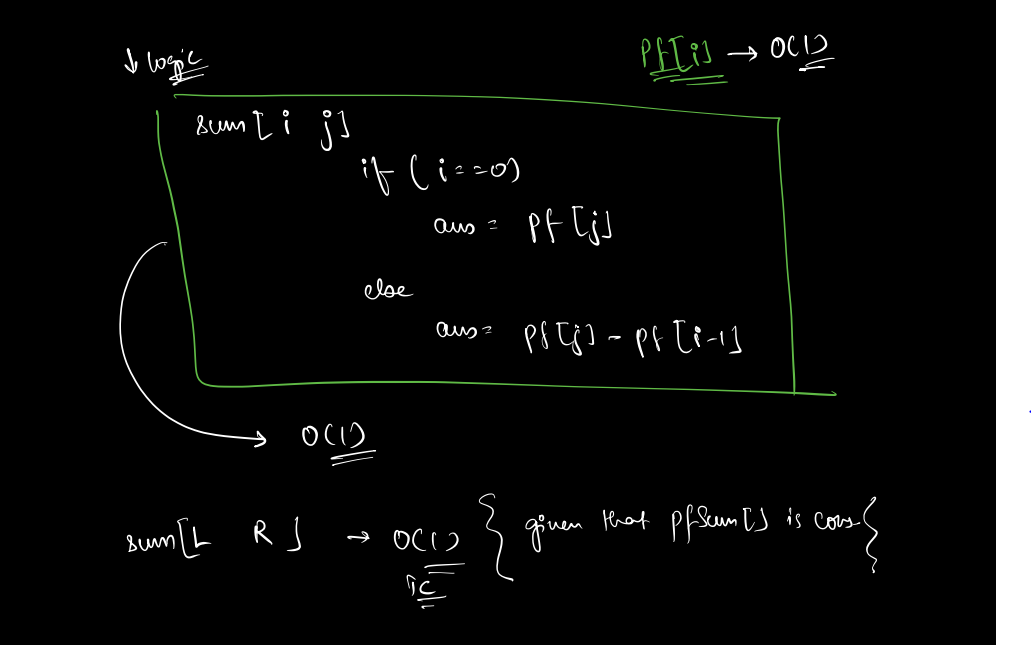 ↓ logic
Pf[i] → O(1)
sum[i j]
if (i==0)
ans = pf[j]
else
ans= pf[j] - pf[i-1]
O(1)
sum[L R] → O(1) { given that pfSum[] is cons }
TC